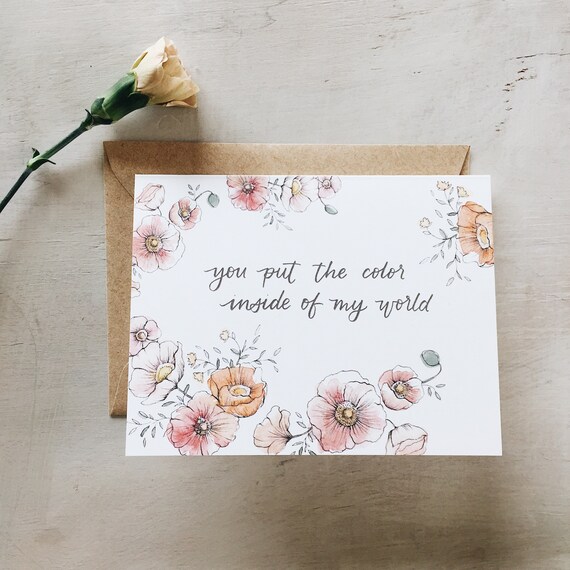 you put the color
inside of my world